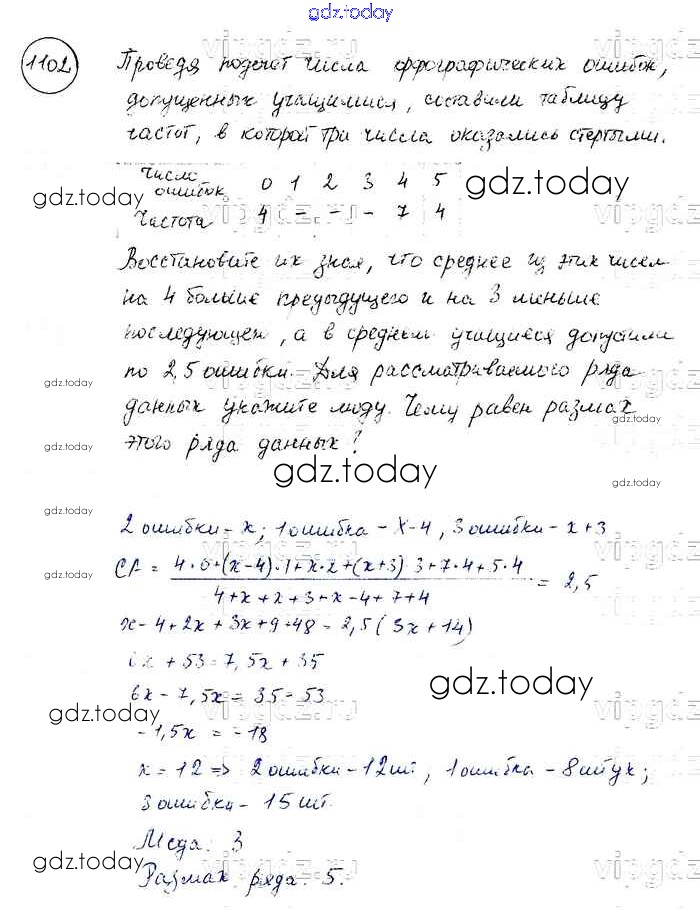 gdz.today
1102 Проведя подсчет числа орфографических ошибок,
допущенных учащимися, составили таблицу
частот, в которой три числа оказались стертыми.
Число ошибок 0 1 2 3 4 5 gdz.today
gdz.today
Частота 4 – – – 7 4
Восстановите их зная, что среднее из этих чисел
на 4 больше предыдущего и на 3 меньше
последующего, а в среднем учащиеся допустили
по 2,5 ошибки. Для рассматриваемого ряда
gdz.today
данных укажите моду. Чему равен размах
gdz.today
этого ряда данных?
gdz.today
gdz.today
gdz.today
2 ошибки – x; 1 ошибка – x-4, 3 ошибки – x+3
gdz.today
СА = 4·0+(x-4)·1+x·2+(x+3)·3+7·4+5·4
4+x+x+3+x-4+7+4 = 2,5
gdz.today
x-4+2x+3x+9+48=2,5(3x+14)
6x+53=7,5x+35
gdz.today
6x-7,5x=35-53
gdz.today
-1,5x=-18
x=12 => 2 ошибки – 12 шт, 1 ошибка – 8 штук;
3 ошибки – 15 шт.
Мода: 3
gdz.today
gdz.today
Размах ряда: 5.
vipgdz.ru